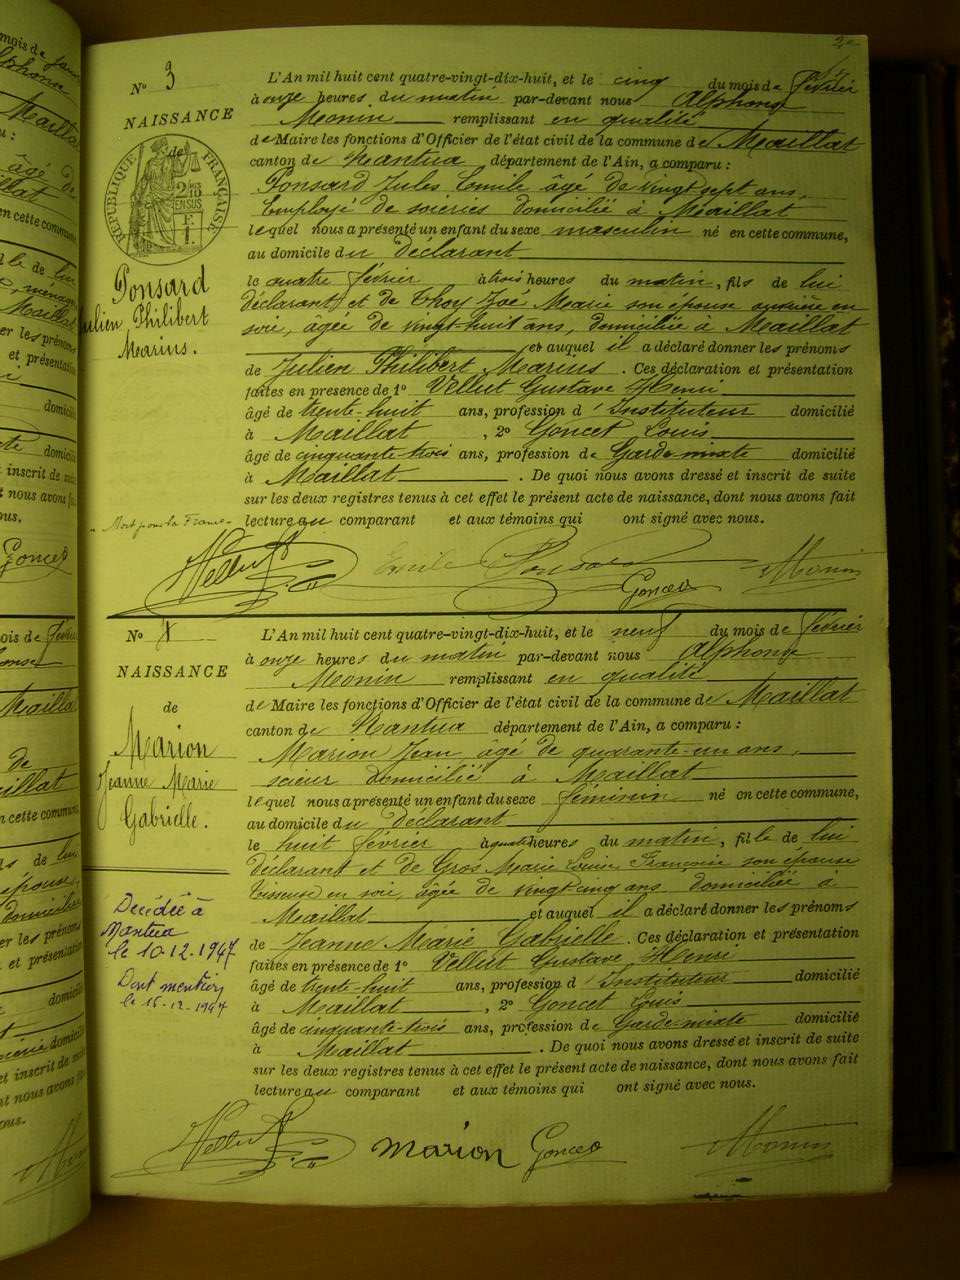 2e
No 3
NAISSANCE
de
RÉPUBLIQUE FRANÇAISE
2/10 EN SUS
F 1
Ponsard
Julien Philibert
Marius.
« Mort pour la France »
L'An mil huit cent quatre-vingt-dix-huit, et le cinq du mois de février
à onze heures du matin par-devant nous Alphonse
Monin remplissant en qualité
de Maire les fonctions d'Officier de l'état civil de la commune de Maillat
canton de Nantua, département de l'Ain, a comparu :
Ponsard Jules Emile âgé de vingt sept ans,
Employé de soieries domicilié à Maillat
lequel nous a présenté un enfant du sexe masculin né en cette commune,
au domicile du déclarant
le quatre février à trois heures du matin, fils de lui
déclarant et de Thoy Zoé Marie son épouse ouvrière en
soie, âgée de vingt-huit ans, domiciliée à Maillat
et auquel il a déclaré donner les prénoms
de Julien Philibert Marius. Ces déclaration et présentation
faites en presence de 1o Vellut Gustave Henri
âgé de trente-huit ans, profession d'Instituteur domicilié
à Maillat, 2o Goncet Louis
âgé de cinquante-trois ans, profession de Garde-mixte domicilié
à Maillat. De quoi nous avons dressé et inscrit de suite
sur les deux registres tenus à cet effet le présent acte de naissance, dont nous avons fait
lecture au comparant et aux témoins qui ont signé avec nous.
Vellut Emile Ponsard Goncet Monin
No 4
NAISSANCE
de
Marion
Jeanne Marie
Gabrielle.
Décédée à
Nantua
le 10.12.1947
Dont mention
le 15-12-1947
L'An mil huit cent quatre-vingt-dix-huit, et le neuf du mois de février
à onze heures du matin par-devant nous Alphonse
Monin remplissant en qualité
de Maire les fonctions d'Officier de l'état civil de la commune de Maillat
canton de Nantua département de l'Ain, a comparu :
Marion Jean âgé de quarante-un ans,
scieur domicilié à Maillat
lequel nous a présenté un enfant du sexe féminin né en cette commune,
au domicile du déclarant
le huit février à quatre heures du matin, fille de lui
déclarant et de Gros Marie Louise Françoise son épouse
tisseuse en soie, âgée de vingt cinq ans domiciliée à
Maillat et auquel il a déclaré donner les prénoms
de Jeanne Marie Gabrielle. Ces déclaration et présentation
faites en présence de 1o Vellut Gustave Henri
âgé de trente-huit ans, profession d'Instituteur domicilié
à Maillat, 2o Goncet Louis
âgé de cinquante-trois ans, profession de Garde-mixte domicilié
à Maillat. De quoi nous avons dressé et inscrit de suite
sur les deux registres tenus à cet effet le présent acte de naissance, dont nous avons fait
lecture au comparant et aux témoins qui ont signé avec nous.
Vellut Marion Goncet Monin